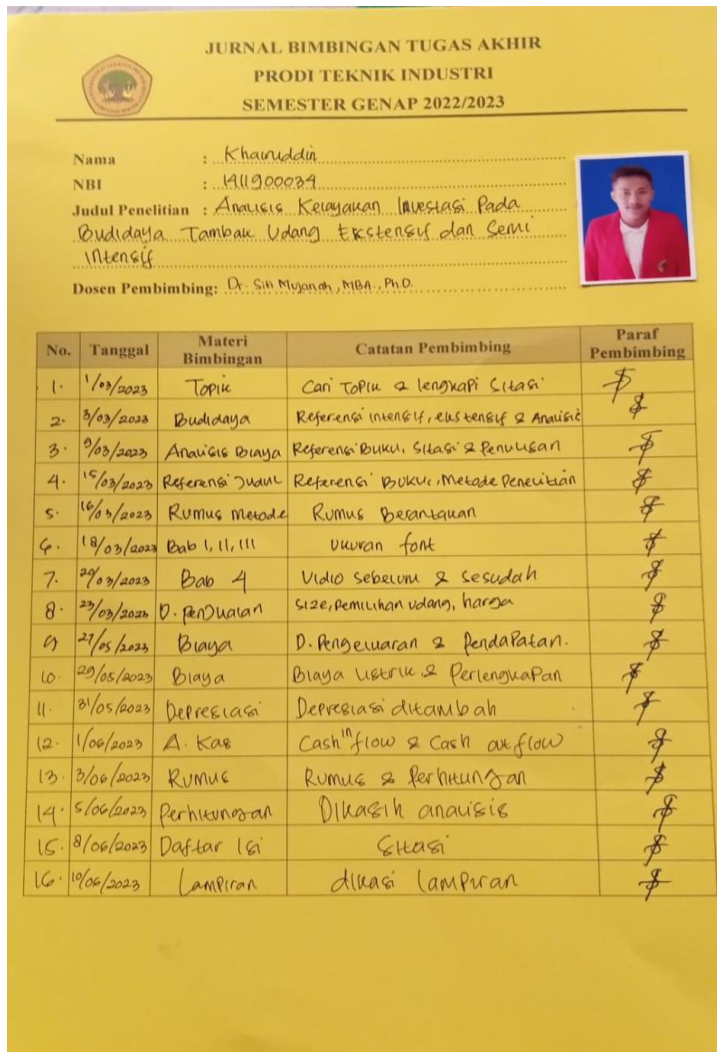 JURNAL BIMBINGAN TUGAS AKHIR
PRODI TEKNIK INDUSTRI
SEMESTER GENAP 2022/2023
Nama : Khairuddin
NBI : 1411900034
Judul Penelitian : Analisis Kelayakan Investasi Pada
Budidaya Tambak Udang Ekstensif dan Semi
Intensif
Dosen Pembimbing: Dr. Siti Mujanah, MBA., Ph.D.
No. Tanggal Materi Bimbingan Catatan Pembimbing Paraf Pembimbing
1. 1/03/2023 Topik Cari Topik & lengkapi Sitasi
2. 3/03/2023 Budidaya Referensi intensif, ekstensif & Analisis
3. 9/03/2023 Analisis Biaya Referensi Buku, Sitasi & Penulisan
4. 15/03/2023 Referensi Judul Referensi Buku, Metode Penelitian
5. 16/03/2023 Rumus Metode Rumus Berantakan
6. 18/03/2023 Bab I, II, III Ukuran font
7. /03/2023 Bab 4 Vidio sebelum & sesudah
8. 23/03/2023 D. Penjualan Size, pemilihan udang, harga
9 27/05/2023 Biaya D. Pengeluaran & Pendapatan.
10. 29/05/2023 Biaya Biaya Listrik & Perlengkapan
11. 31/05/2023 Depresiasi Depresiasi ditambah
12. 1/06/2023 A. Kas Cash in flow & Cash out flow
13. 3/06/2023 Rumus Rumus & Perhitungan
14. 5/06/2023 Perhitungan Dikasih analisis
15. 8/06/2023 Daftar Isi Sitasi
16. 10/06/2023 Lampiran dikasi lampiran